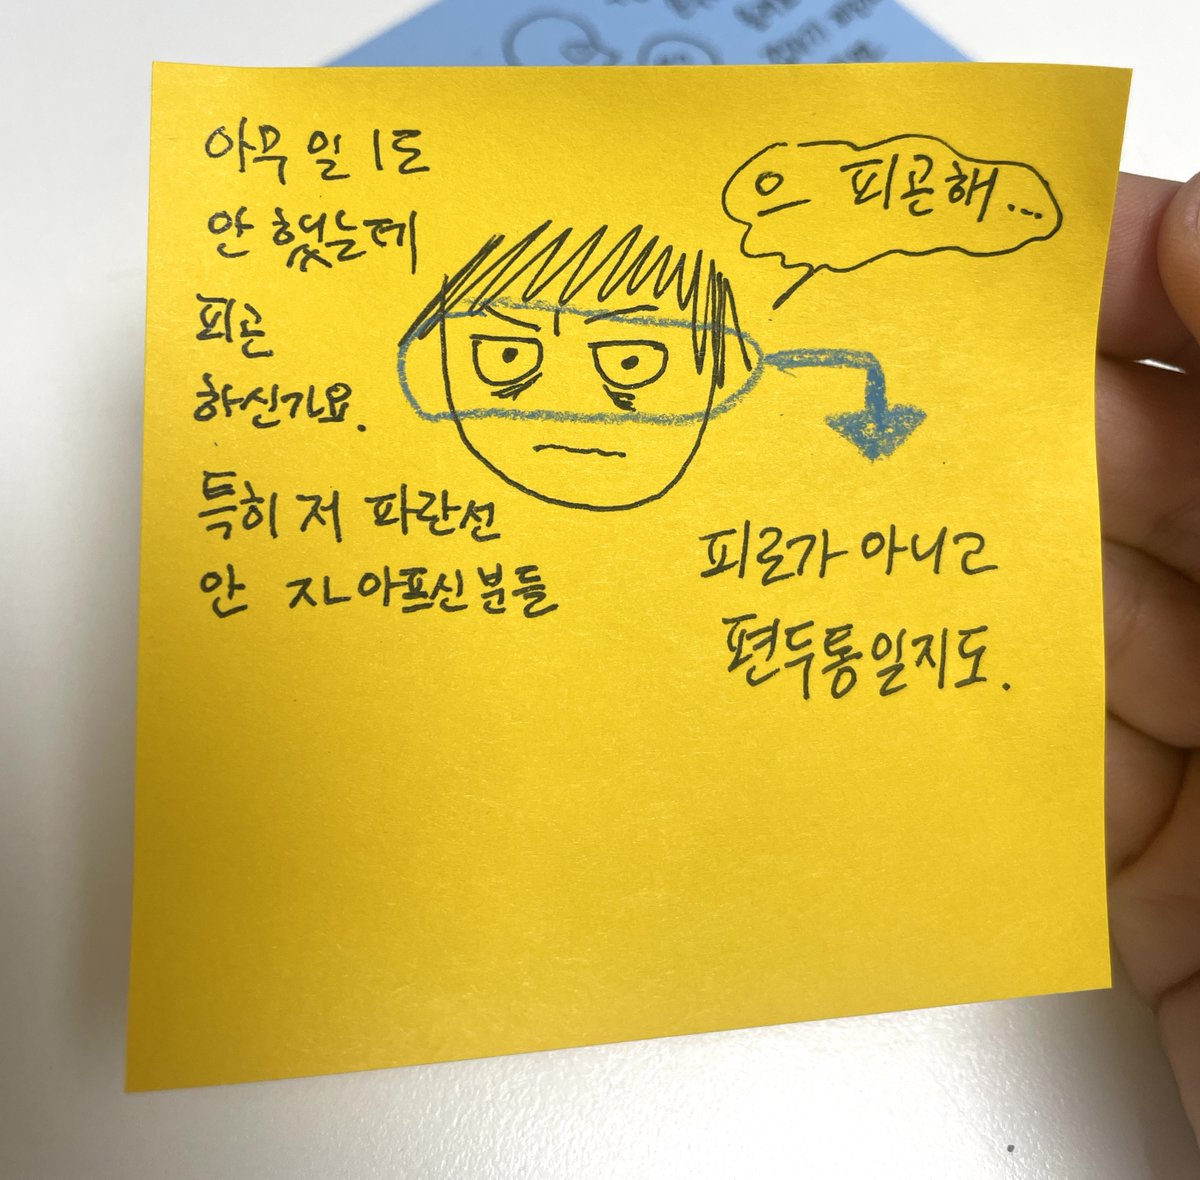 아무 일 1도
안 했는데
피곤
하신가요.
특히 저 파란선
안 자나아프신분들
으 피곤해...
피로가 아니고
편두통일지도.